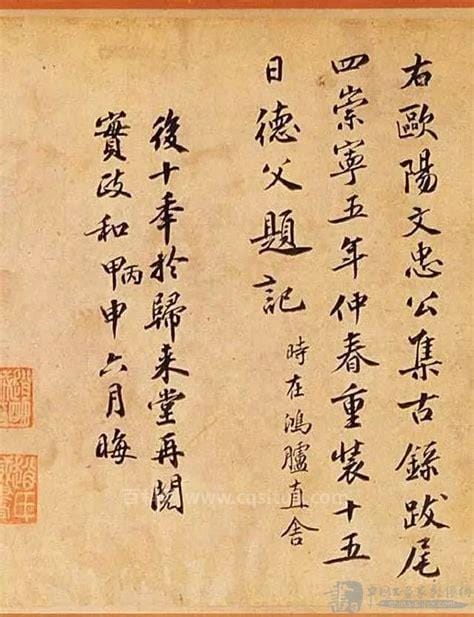 右歐陽文忠公集古錄跋尾
四崇寧五年仲春重裝十五
日德父題記
時在鴻臚直舍
後十年於歸来堂再閱
實政和甲丙申六月晦
www.cqsltu